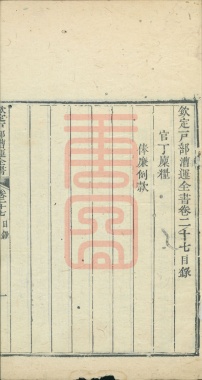 欽定戶部漕運全書卷二十七目錄
官丁廩糧
俸廉伺款
欽定戶部漕運全書
卷二十七目錄